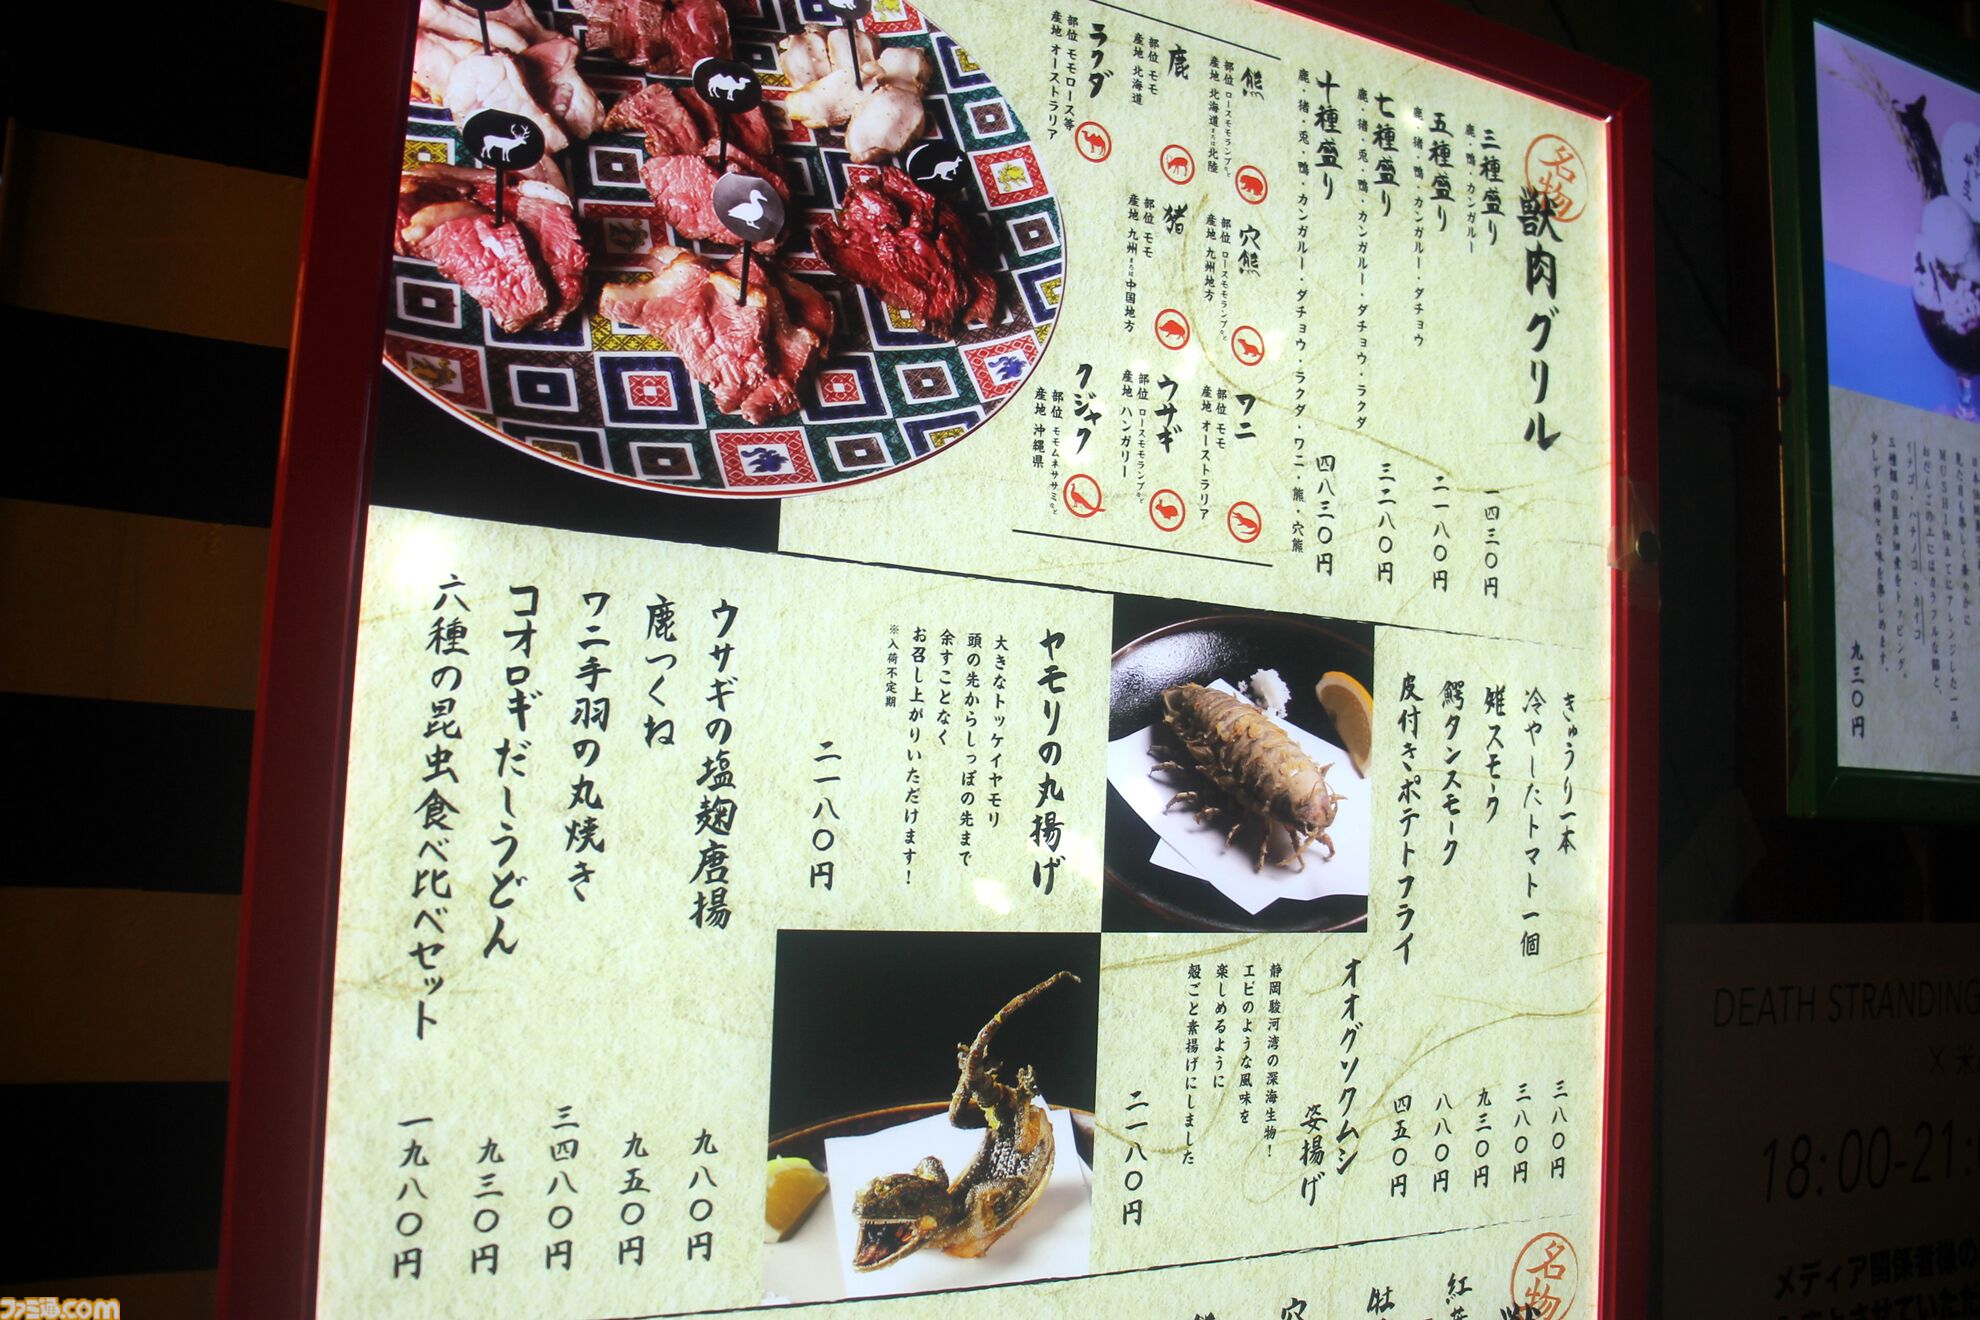 名物
獣肉グリル
三種盛り
鹿・鴨・カンガルー
一四三〇円
五種盛り
鹿・猪・鴨・カンガルー・ダチョウ
二一八〇円
七種盛り
鹿・猪・兎・鴨・カンガルー・ダチョウ・ラクダ
三二八〇円
十種盛り
鹿・猪・兎・鴨・カンガルー・ダチョウ・ラクダ・ワニ・熊・穴熊
四八三〇円
熊
部位 ロースモモランプなど
産地 北海道または北陸
穴熊
部位 ロースモモランプなど
産地 九州地方
ワニ
部位 モモ
産地 オーストラリア
鹿
部位 モモ
産地 北海道
猪
部位 モモ
産地 九州または中国地方
ウサギ
部位 ロースモモランプなど
産地 ハンガリー
ラクダ
部位 モモロース等
産地 オーストラリア
クジャク
部位 モモムネササミなど
産地 沖縄県
きゅうり一本
三八〇円
冷やしたトマト一個
三八〇円
雉スモーク
九三〇円
鰐タンスモーク
八八〇円
皮付きポテトフライ
四五〇円
オオグソクムシ
姿揚げ
静岡駿河湾の深海生物！
エビのような風味を
楽しめるように
殻ごと素揚げにしました
二一八〇円
ヤモリの丸揚げ
大きなトッケイヤモリ
頭の先からしっぽの先まで
余すことなく
お召し上がりいただけます！
※入荷不定期
二一八〇円
ウサギの塩麹唐揚
九八〇円
鹿つくね
九五〇円
ワニ手羽の丸焼き
三四八〇円
コオロギだしうどん
九三〇円
六種の昆虫食べ比べセット
一九八〇円
名物
イナゴ・ハチノコ・カイコ
三種類の昆虫佃煮をトッピング。
少しずつ様々な味を楽しめます。
九三〇円
DEATH STRANDING
18:00-21:
メディア関係者様の
ファミ通.com